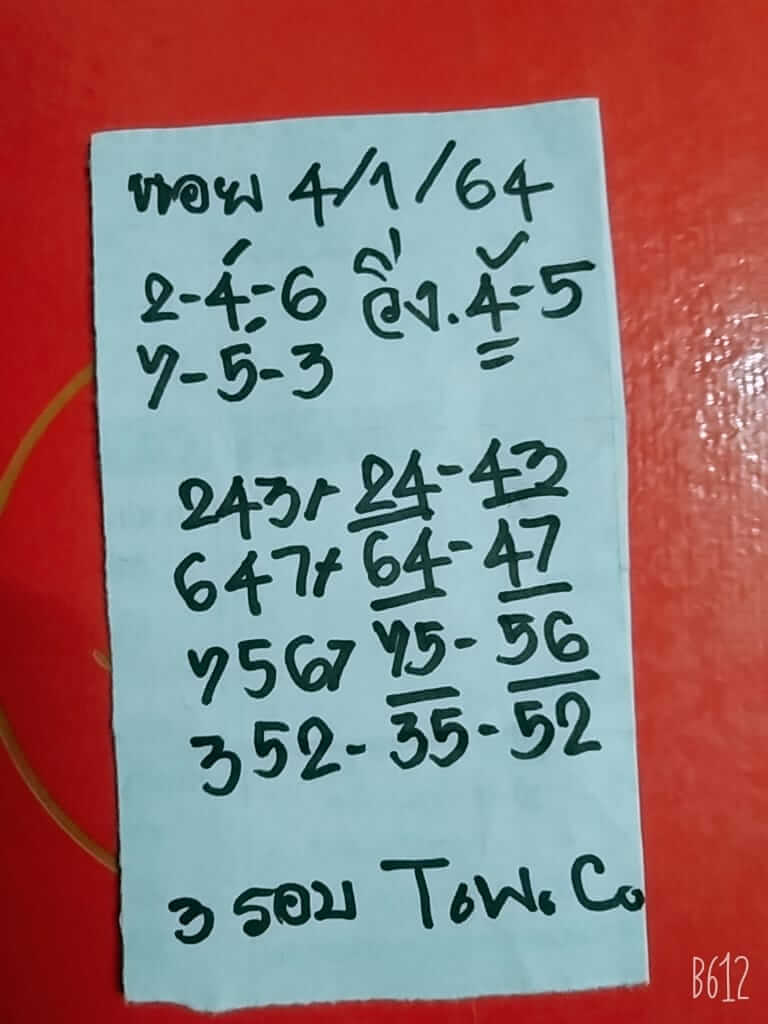 หอย 4/1/64
2-4-6 วิ่ง.4-5
7-5-3
243 24-43
647 64-47
756 75-56
352-35-52
3 รอบ T.พ. C.
B612